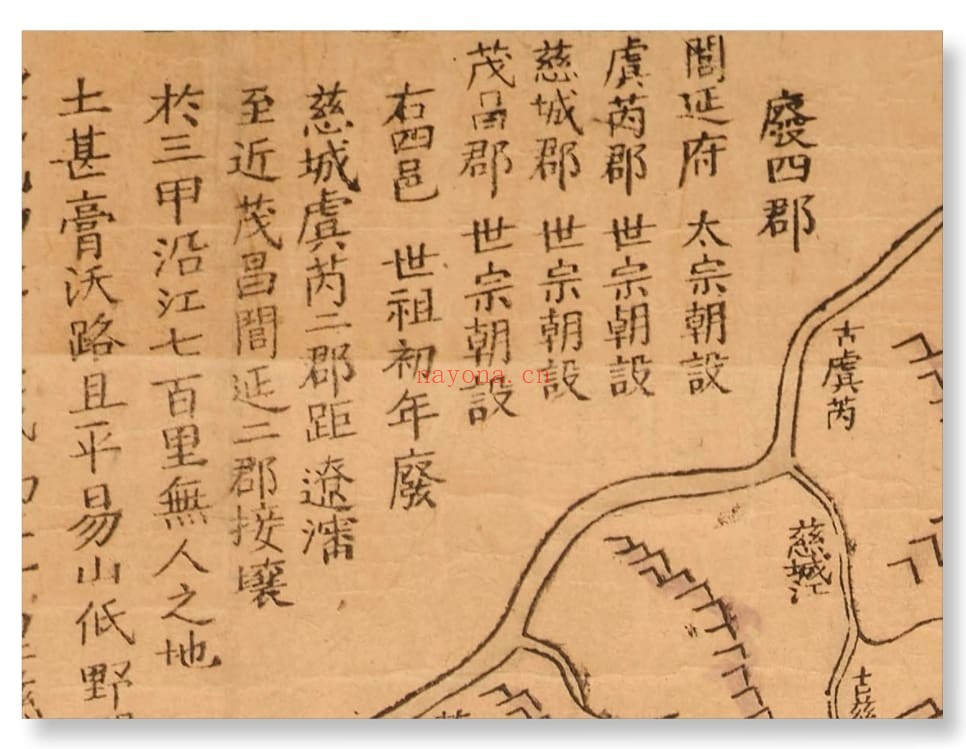 廢四郡
閭延府 太宗朝設
虞芮郡 世宗朝設
慈城郡 世宗朝設
茂昌郡 世宗朝設
右四邑 世祖初年廢
慈城虞芮二郡距遼瀋
至近茂昌閭延二郡接壤
於三甲沿江七百里無人之地
土甚膏沃路且平易山低野
古虞芮
慈城江
古慈
nayona.cn